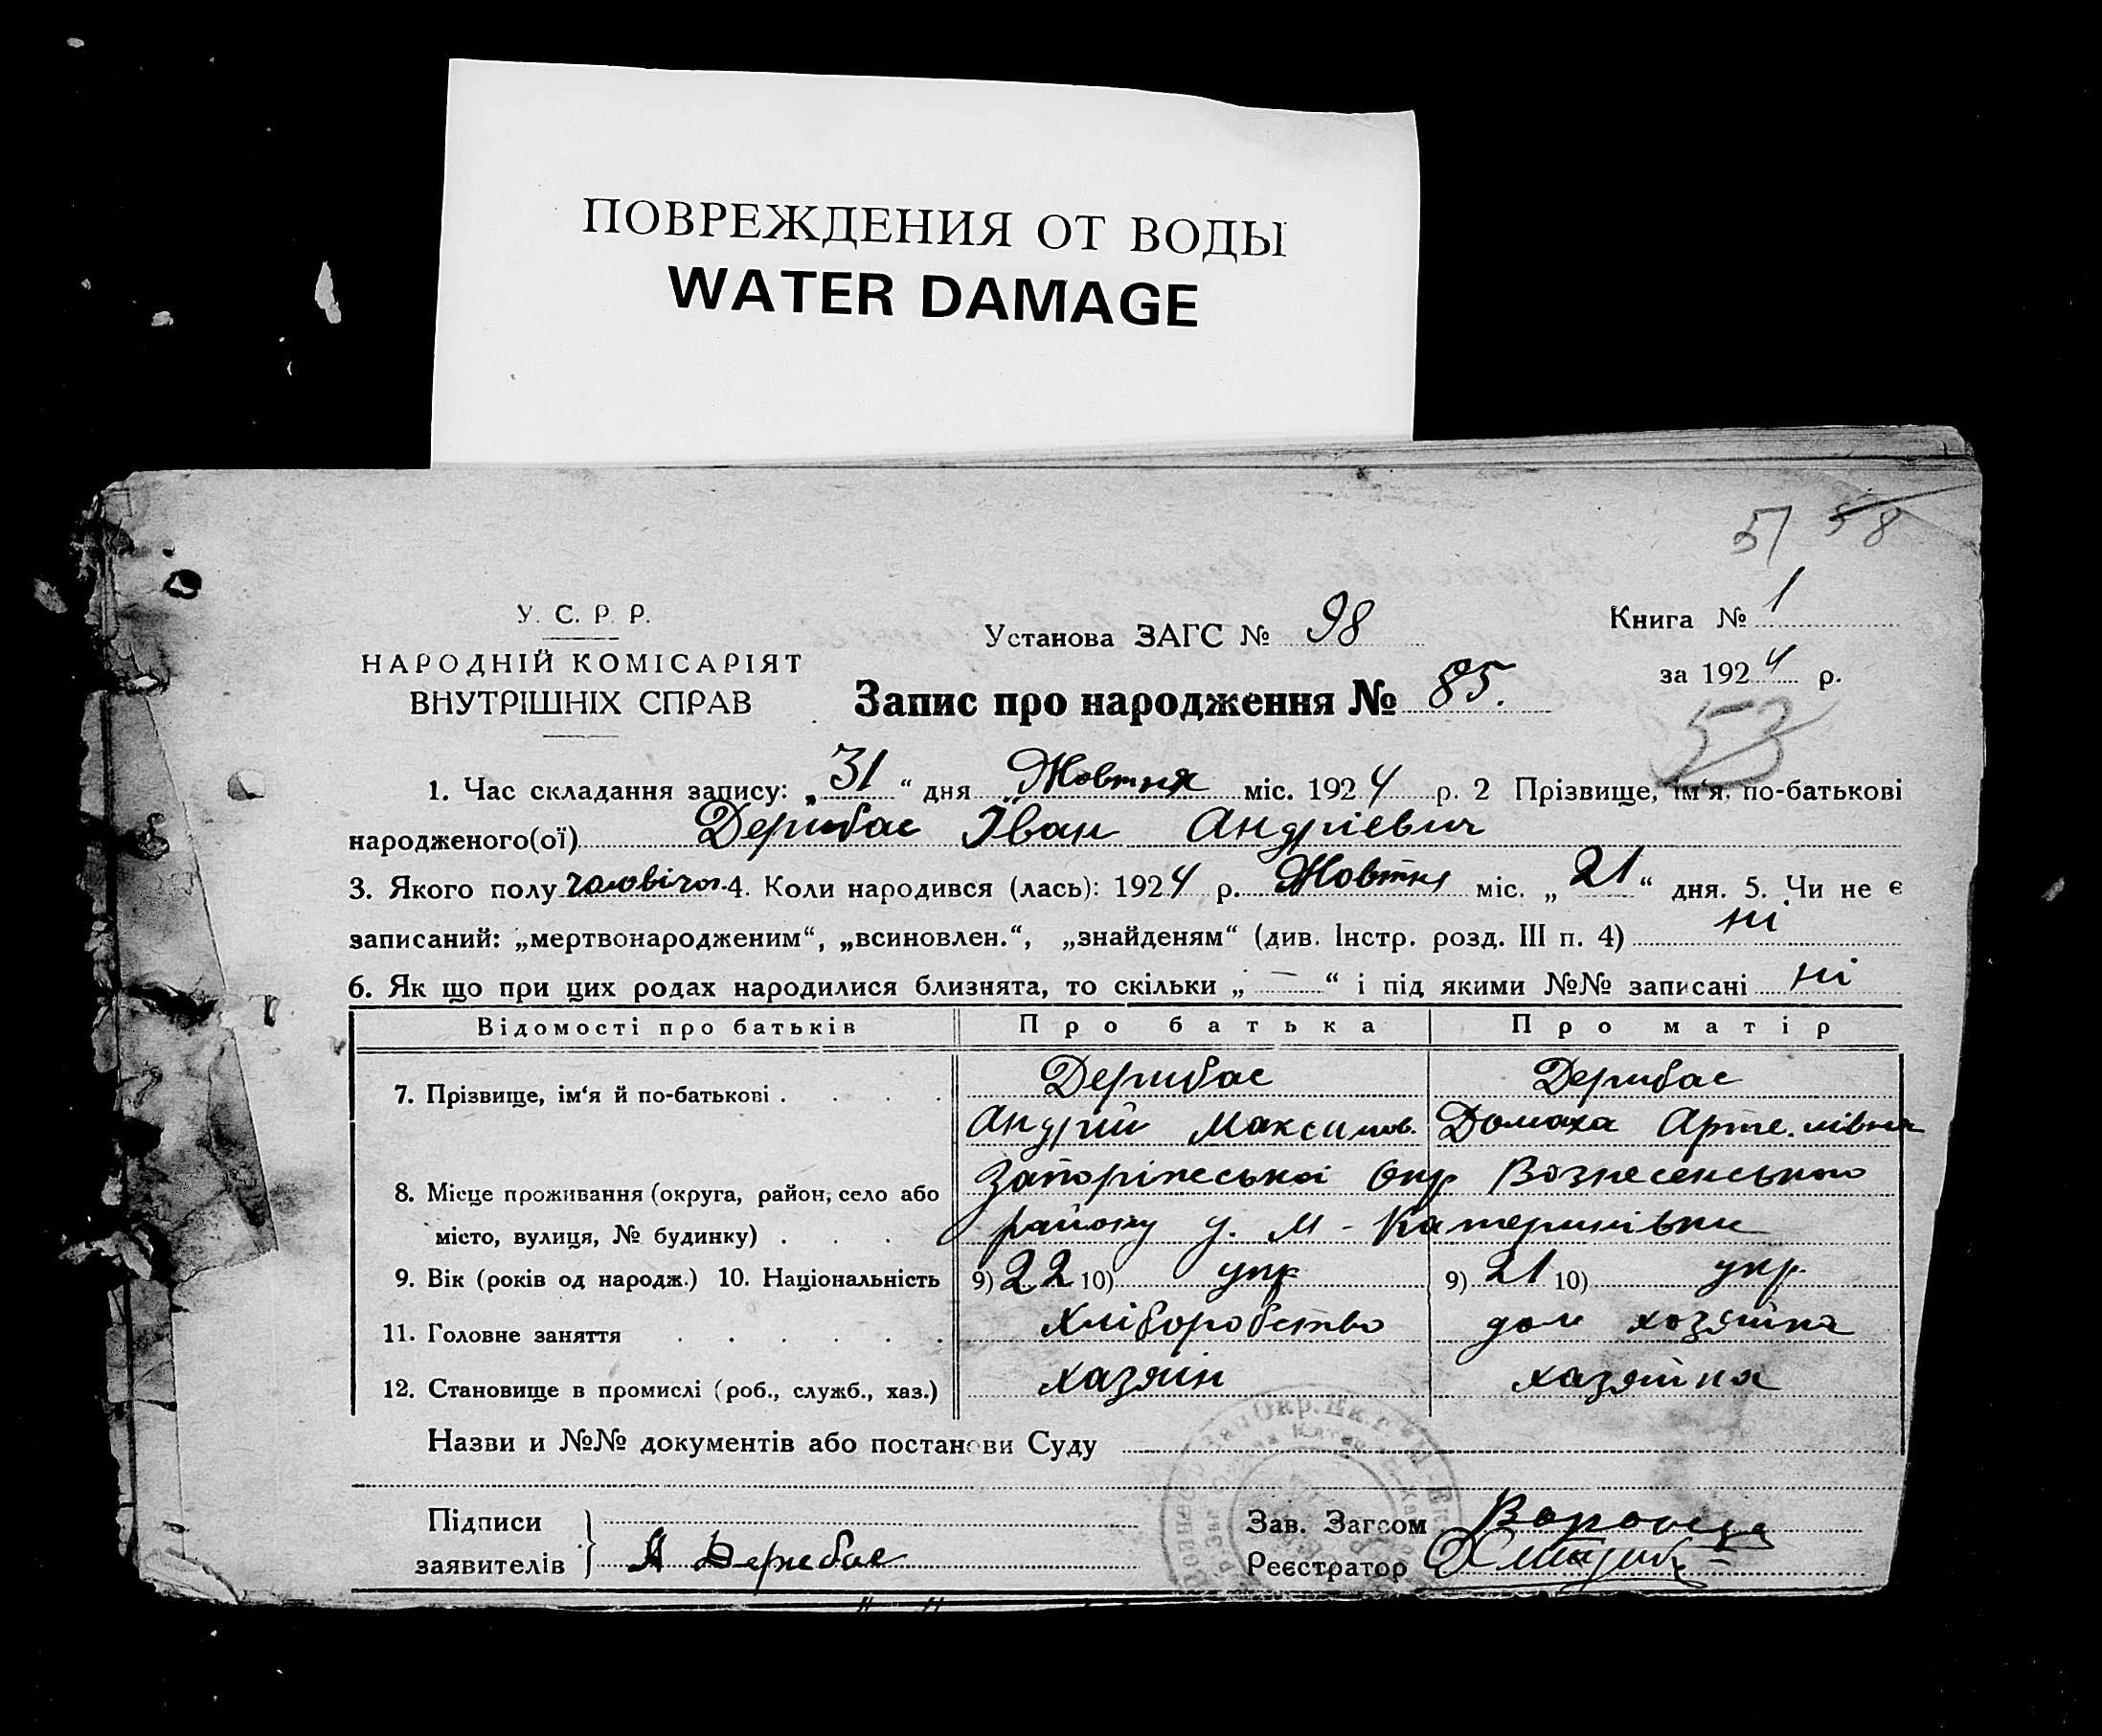 ПОВРЕЖДЕНИЯ ОТ ВОДЫ
WATER DAMAGE
51 58
У. С. Р. Р.
НАРОДНІЙ КОМІСАРІЯТ
ВНУТРІШНІХ СПРАВ
Установа ЗАГС № 98
Книга № 1
за 1924 р.
Запис про народження № 85.
53
1. Час складання запису: „31“ дня Жовтня міс. 1924 р. 2 Прізвище, ім‘я, по-батькові
народженого(ої) Дерибас Іван Андрієвич
3. Якого полу чоловічог. 4. Коли народився (лась): 1924 р. Жовтня міс. „21“ дня. 5. Чи не є
записаний: „мертвонародженим“, „всиновлен.“, „знайденям“ (див. Інстр. розд. III п. 4) ні
6. Як що при цих родах народилися близнята, то скільки „—“ і під якими №№ записані ні
Відомості про батьків Про батька Про матір
7. Прізвище, ім‘я й по-батькові . . . . Дерибас Дерибас
Андрій Максимов. Домаха Арте.мівна
8. Місце проживання (округа, район, село або Запоріжської Окр Вознесенського
місто, вулиця, № будинку) . . . району у. М-Катеринівки
9. Вік (років од народж.) 10. Національність 9) 22 10) укр 9) 21 10) укр
11. Головне заняття . . . . . . Хліборобство дом хозяйка
12. Становище в промислі (роб., служб., хаз.) хазяїн хазяйка
Назви и №№ документів або постанови Суду
Підписи
заявителів } А Дерибас
Зав. Загсом
Реєстратор